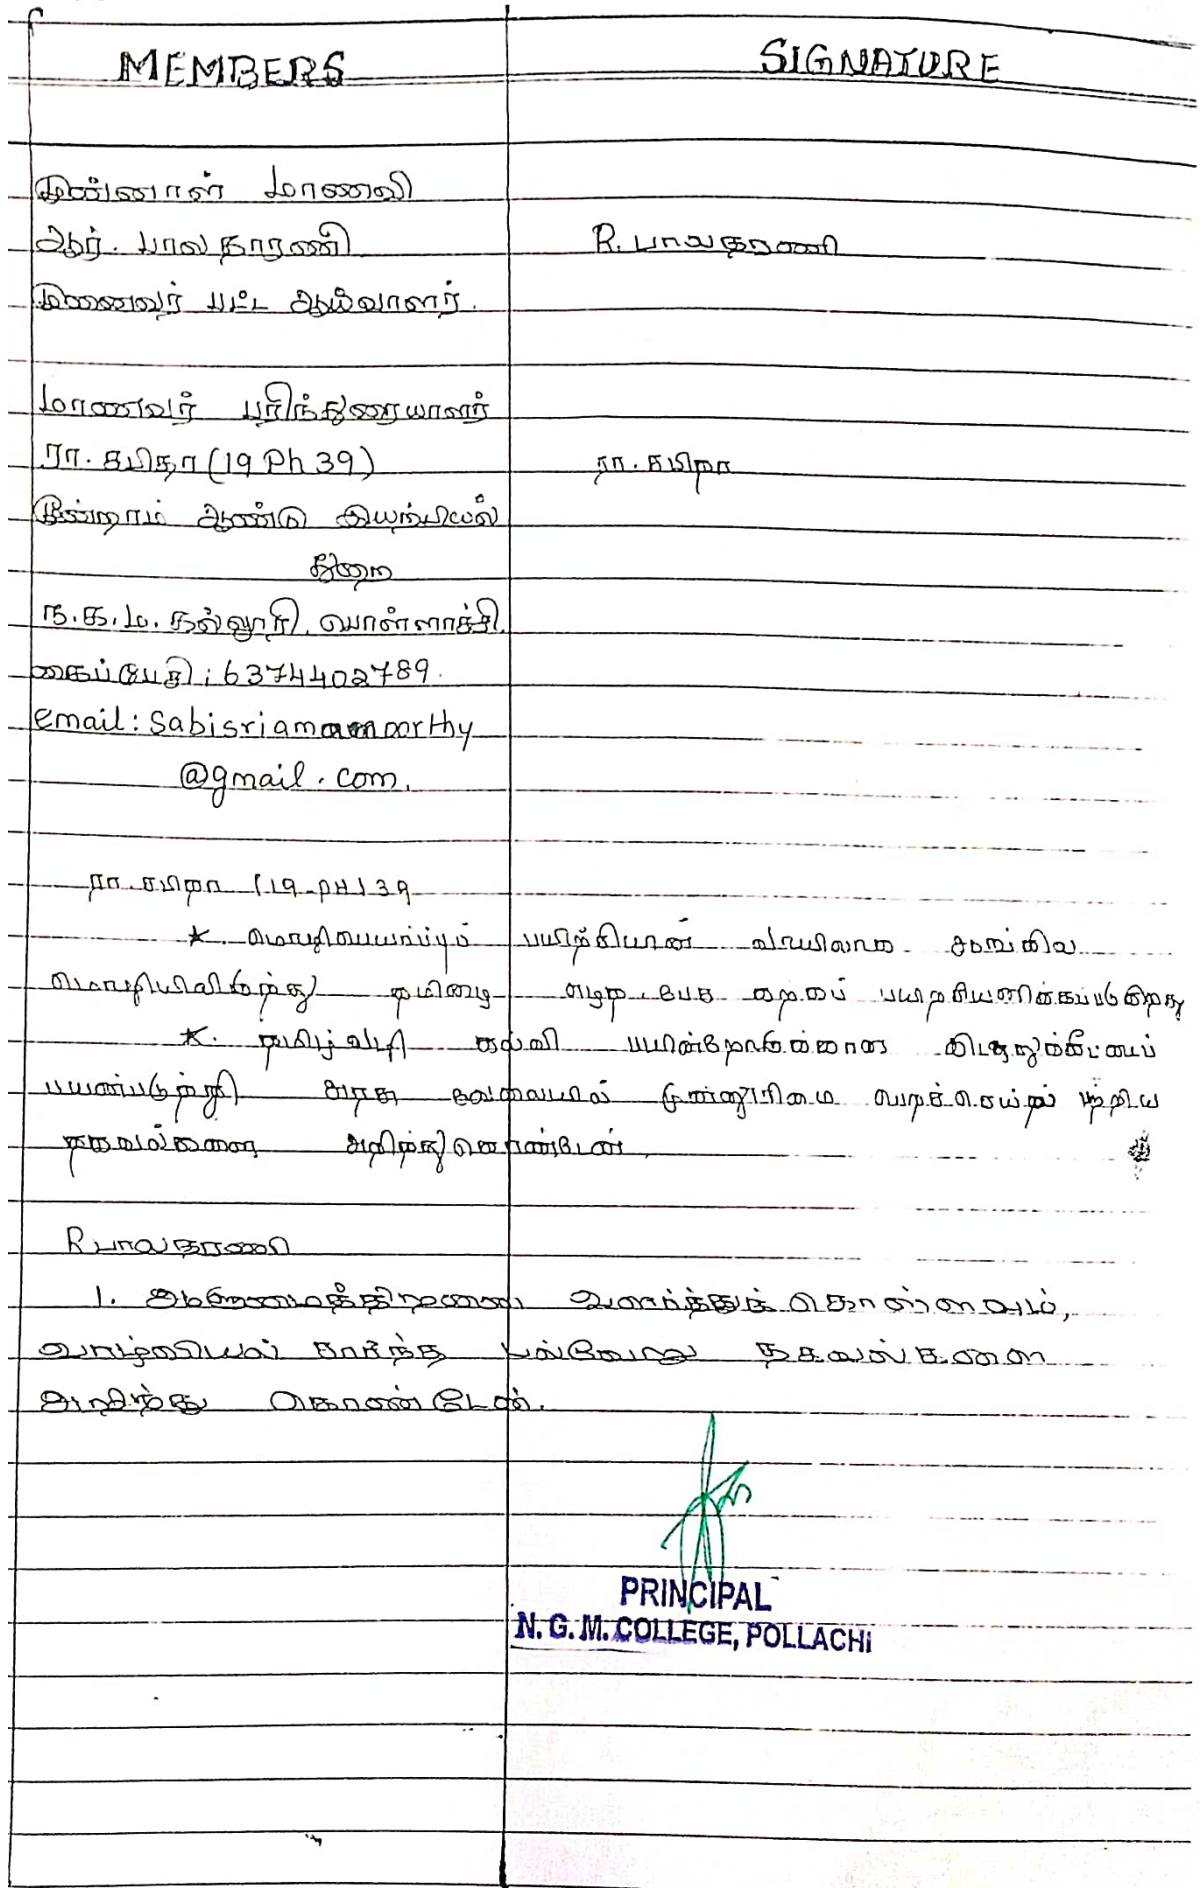 MEMBERS SIGNATURE
முன்னாள் மாணவி
ஆர். பாலதாரணி R. பாலதாரணி
முனைவர் பட்ட ஆய்வாளர்.
மாணவர் பரிந்துரையாளர்
ரா. சபிதா (19 Ph 39) ரா. சபிதா
மூன்றாம் ஆண்டு இயற்பியல்
துறை
ந.க.ம. கல்லூரி, பொள்ளாச்சி.
கைப்பேசி: 6374402789.
email: Sabisriam moorthy
@gmail.com.
ரா. சபிதா (19-PH) 39
* மொழிபெயர்ப்புப் பயிற்சியின் வாயிலாக ஆங்கில
மொழியிலிருந்து தமிழை எழுத, பேச பயிற்சியளிக்கப்படுகிறது
* தமிழ்வழி கல்வி பயின்றோருக்கான இடஒதுக்கீட்டைப்
பயன்படுத்தி அரசு வேலையில் முன்னுரிமை பெறச்செய்தல் பற்றிய
தகவல்களை அறிந்துகொண்டேன்.
R பாலதாரணி
1. ஆளுமைத்திறனை வளர்த்துக் கொள்ளவும்,
வாழ்வியல் சார்ந்த பல்வேறு தகவல்களை
அறிந்து கொண்டேன்.
PRINCIPAL
N. G. M. COLLEGE, POLLACHI